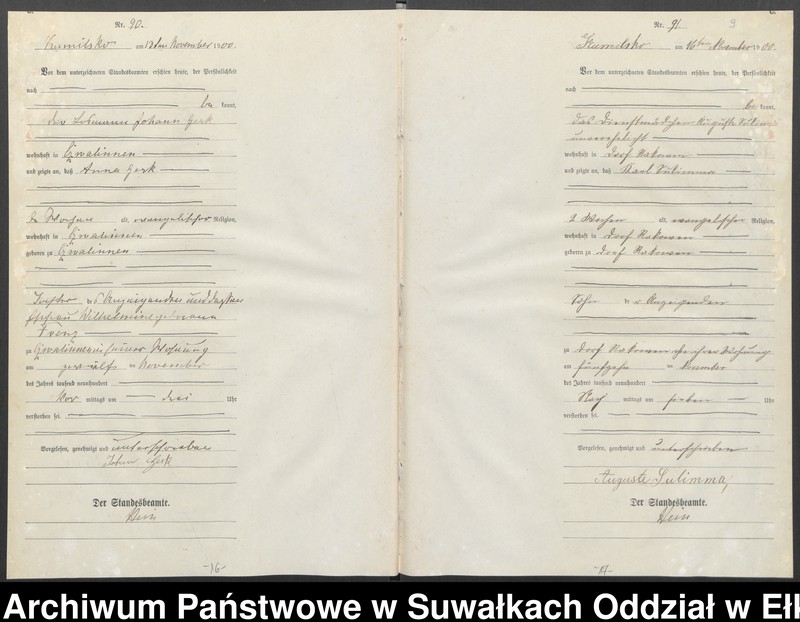 Nr. 90.
Kumilsko am 13ten November 1900.
Vor dem unterzeichneten Standesbeamten erschien heute, der Persönlichkeit
nach
be kannt,
der Losmann Johann Jerk
wohnhaft in Gwalinnen
und zeigte an, daß Anna Jerk
Wochen alt, evangelischer Religion,
wohnhaft in Gwalinnen
geboren zu Gwalinnen
Tochter des Anzeigenden und dessen
Ehefrau Wilhelmine geborene
zu Gwalinnen in seiner Wohnung
am zwölften November
des Jahres tausend neunhundert
Vor mittags um drei Uhr
verstorben sei.
Vorgelesen, genehmigt und unterschrieben
Johann Jerk
Der Standesbeamte.
-16-
Nr. 91. 9
Kumilsko am 16ten November 1900.
Vor dem unterzeichneten Standesbeamten erschien heute, der Persönlichkeit
nach
be kannt,
das Dienstmädchen Auguste Sulimma
unverehelicht
wohnhaft in Dorf Rakowen
und zeigte an, daß Karl Sulimma
2 Wochen alt, evangelischer Religion,
wohnhaft in Dorf Rakowen
geboren zu Dorf Rakowen
Sohn der Anzeigenden
zu Dorf Rakowen in ihrer Wohnung
am fünfzehn November
des Jahres tausend neunhundert
Nach mittags um sieben Uhr
verstorben sei.
Vorgelesen, genehmigt und unterschrieben
Auguste Sulimma,
Der Standesbeamte.
-17-
Archiwum Państwowe w Suwałkach Oddział w Ełk